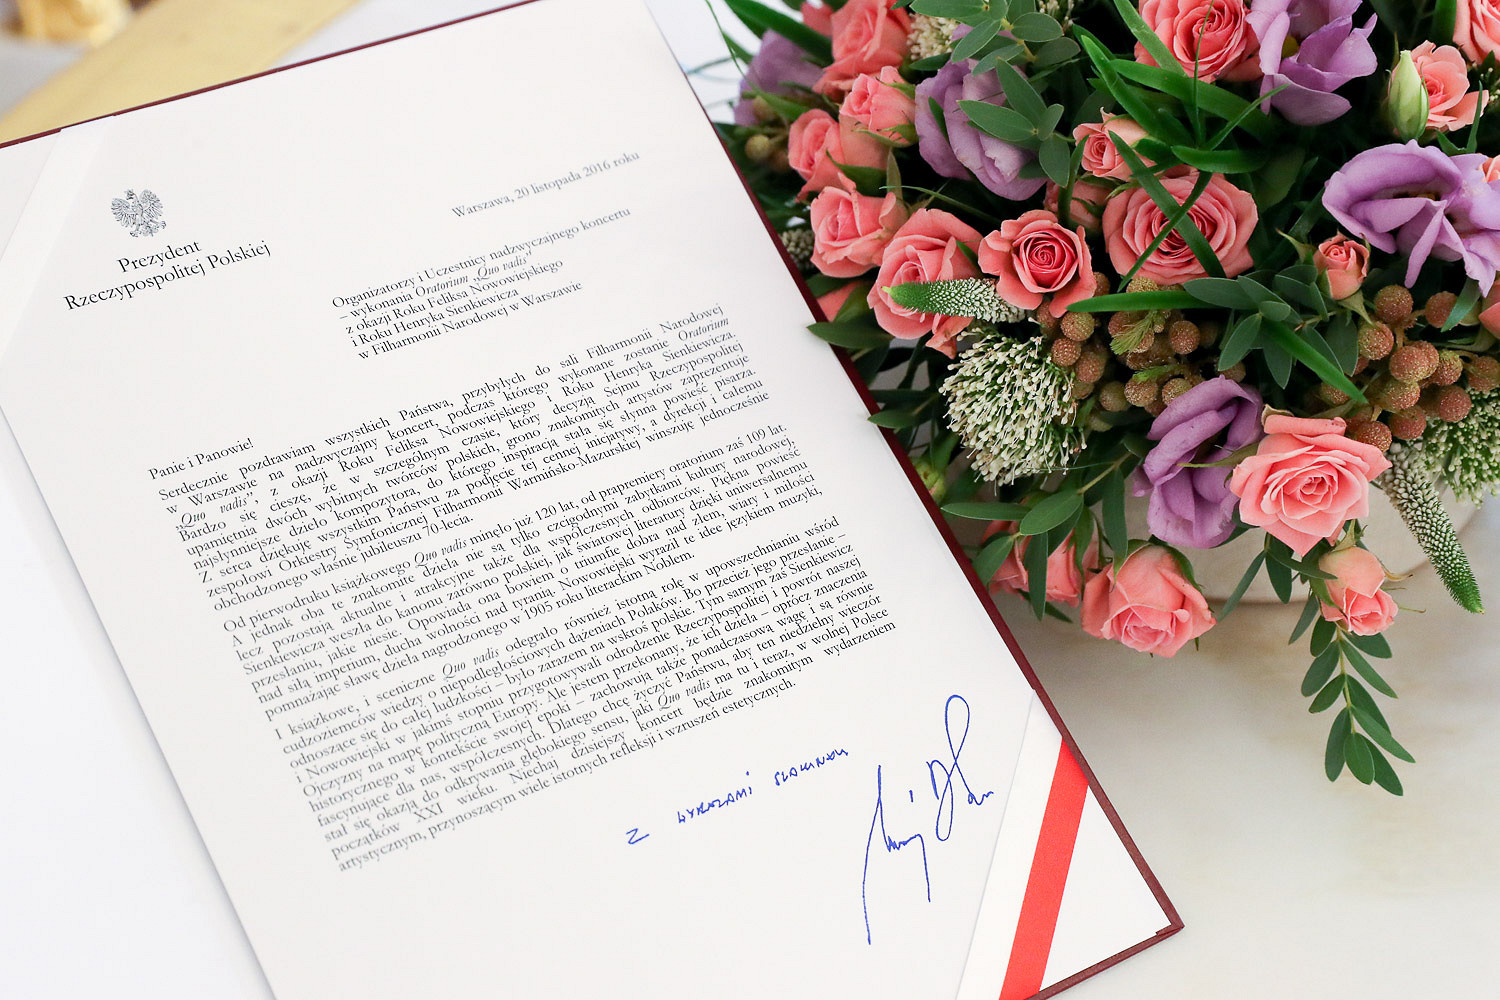 Prezydent
Rzeczypospolitej Polskiej
Warszawa, 20 listopada 2016 roku
Organizatorzy i Uczestnicy nadzwyczajnego koncertu
– wykonania Oratorium „Quo vadis”
z okazji Roku Feliksa Nowowiejskiego
i Roku Henryka Sienkiewicza
w Filharmonii Narodowej w Warszawie
Panie i Panowie!
Serdecznie pozdrawiam wszystkich Państwa, przybyłych do sali Filharmonii Narodowej
w Warszawie na nadzwyczajny koncert, podczas którego wykonane zostanie Oratorium
„Quo vadis”, z okazji Roku Feliksa Nowowiejskiego i Roku Henryka Sienkiewicza.
Bardzo się cieszę, że w szczególnym czasie, który decyzją Sejmu Rzeczypospolitej
upamiętnia dwóch wybitnych twórców polskich, grono znakomitych artystów zaprezentuje
najsłynniejsze dzieło kompozytora, do którego inspiracją stała się słynna powieść pisarza.
Z serca dziękuję wszystkim Państwu za podjęcie tej cennej inicjatywy, a dyrekcji i całemu
zespołowi Orkiestry Symfonicznej Filharmonii Warmińsko-Mazurskiej winszuję jednocześnie
obchodzonego właśnie jubileuszu 70-lecia.
Od pierwodruku książkowego Quo vadis minęło już 120 lat, od prapremiery oratorium zaś 109 lat.
A jednak oba te znakomite dzieła nie są tylko czcigodnymi zabytkami kultury narodowej,
lecz pozostają aktualne i atrakcyjne także dla współczesnych odbiorców. Piękna powieść
Sienkiewicza weszła do kanonu zarówno polskiej, jak światowej literatury dzięki uniwersalnemu
przesłaniu, jakie niesie. Opowiada ona bowiem o triumfie dobra nad złem, wiary i miłości
nad siłą imperium, ducha wolności nad tyranią. Nowowiejski wyraził te idee językiem muzyki,
pomnażając sławę dzieła nagrodzonego w 1905 roku literackim Noblem.
I książkowe, i sceniczne Quo vadis odegrało również istotną rolę w upowszechnianiu wśród
cudzoziemców wiedzy o niepodległościowych dążeniach Polaków. Bo przecież jego przesłanie –
odnoszące się do całej ludzkości – było zarazem na wskroś polskie. Tym samym zaś Sienkiewicz
i Nowowiejski w jakimś stopniu przygotowywali odrodzenie Rzeczypospolitej i powrót naszej
Ojczyzny na mapę polityczną Europy. Ale jestem przekonany, że ich dzieła – oprócz znaczenia
historycznego w kontekście swojej epoki – zachowują także ponadczasową wagę i są równie
fascynujące dla nas, współczesnych. Dlatego chcę życzyć Państwu, aby ten niedzielny wieczór
stał się okazją do odkrywania głębokiego sensu, jaki Quo vadis ma tu i teraz, w wolnej Polsce
początków XXI wieku. Niechaj dzisiejszy koncert będzie znakomitym wydarzeniem
artystycznym, przynoszącym wiele istotnych refleksji i wzruszeń estetycznych.
Z WYRAZAMI SZACUNKU